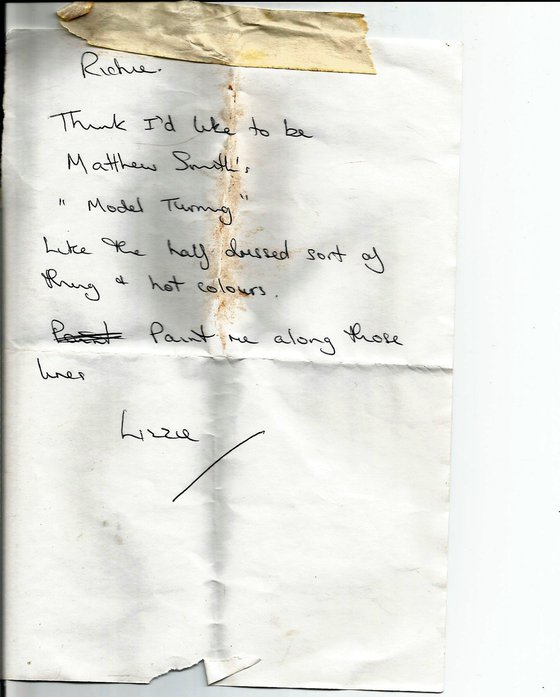 Richie.
Think I'd like to be
Matthew Smith's
"Model Turning"
Like the half dressed sort of
thing & hot colours.
Paint Paint me along those
lines
Lizzie